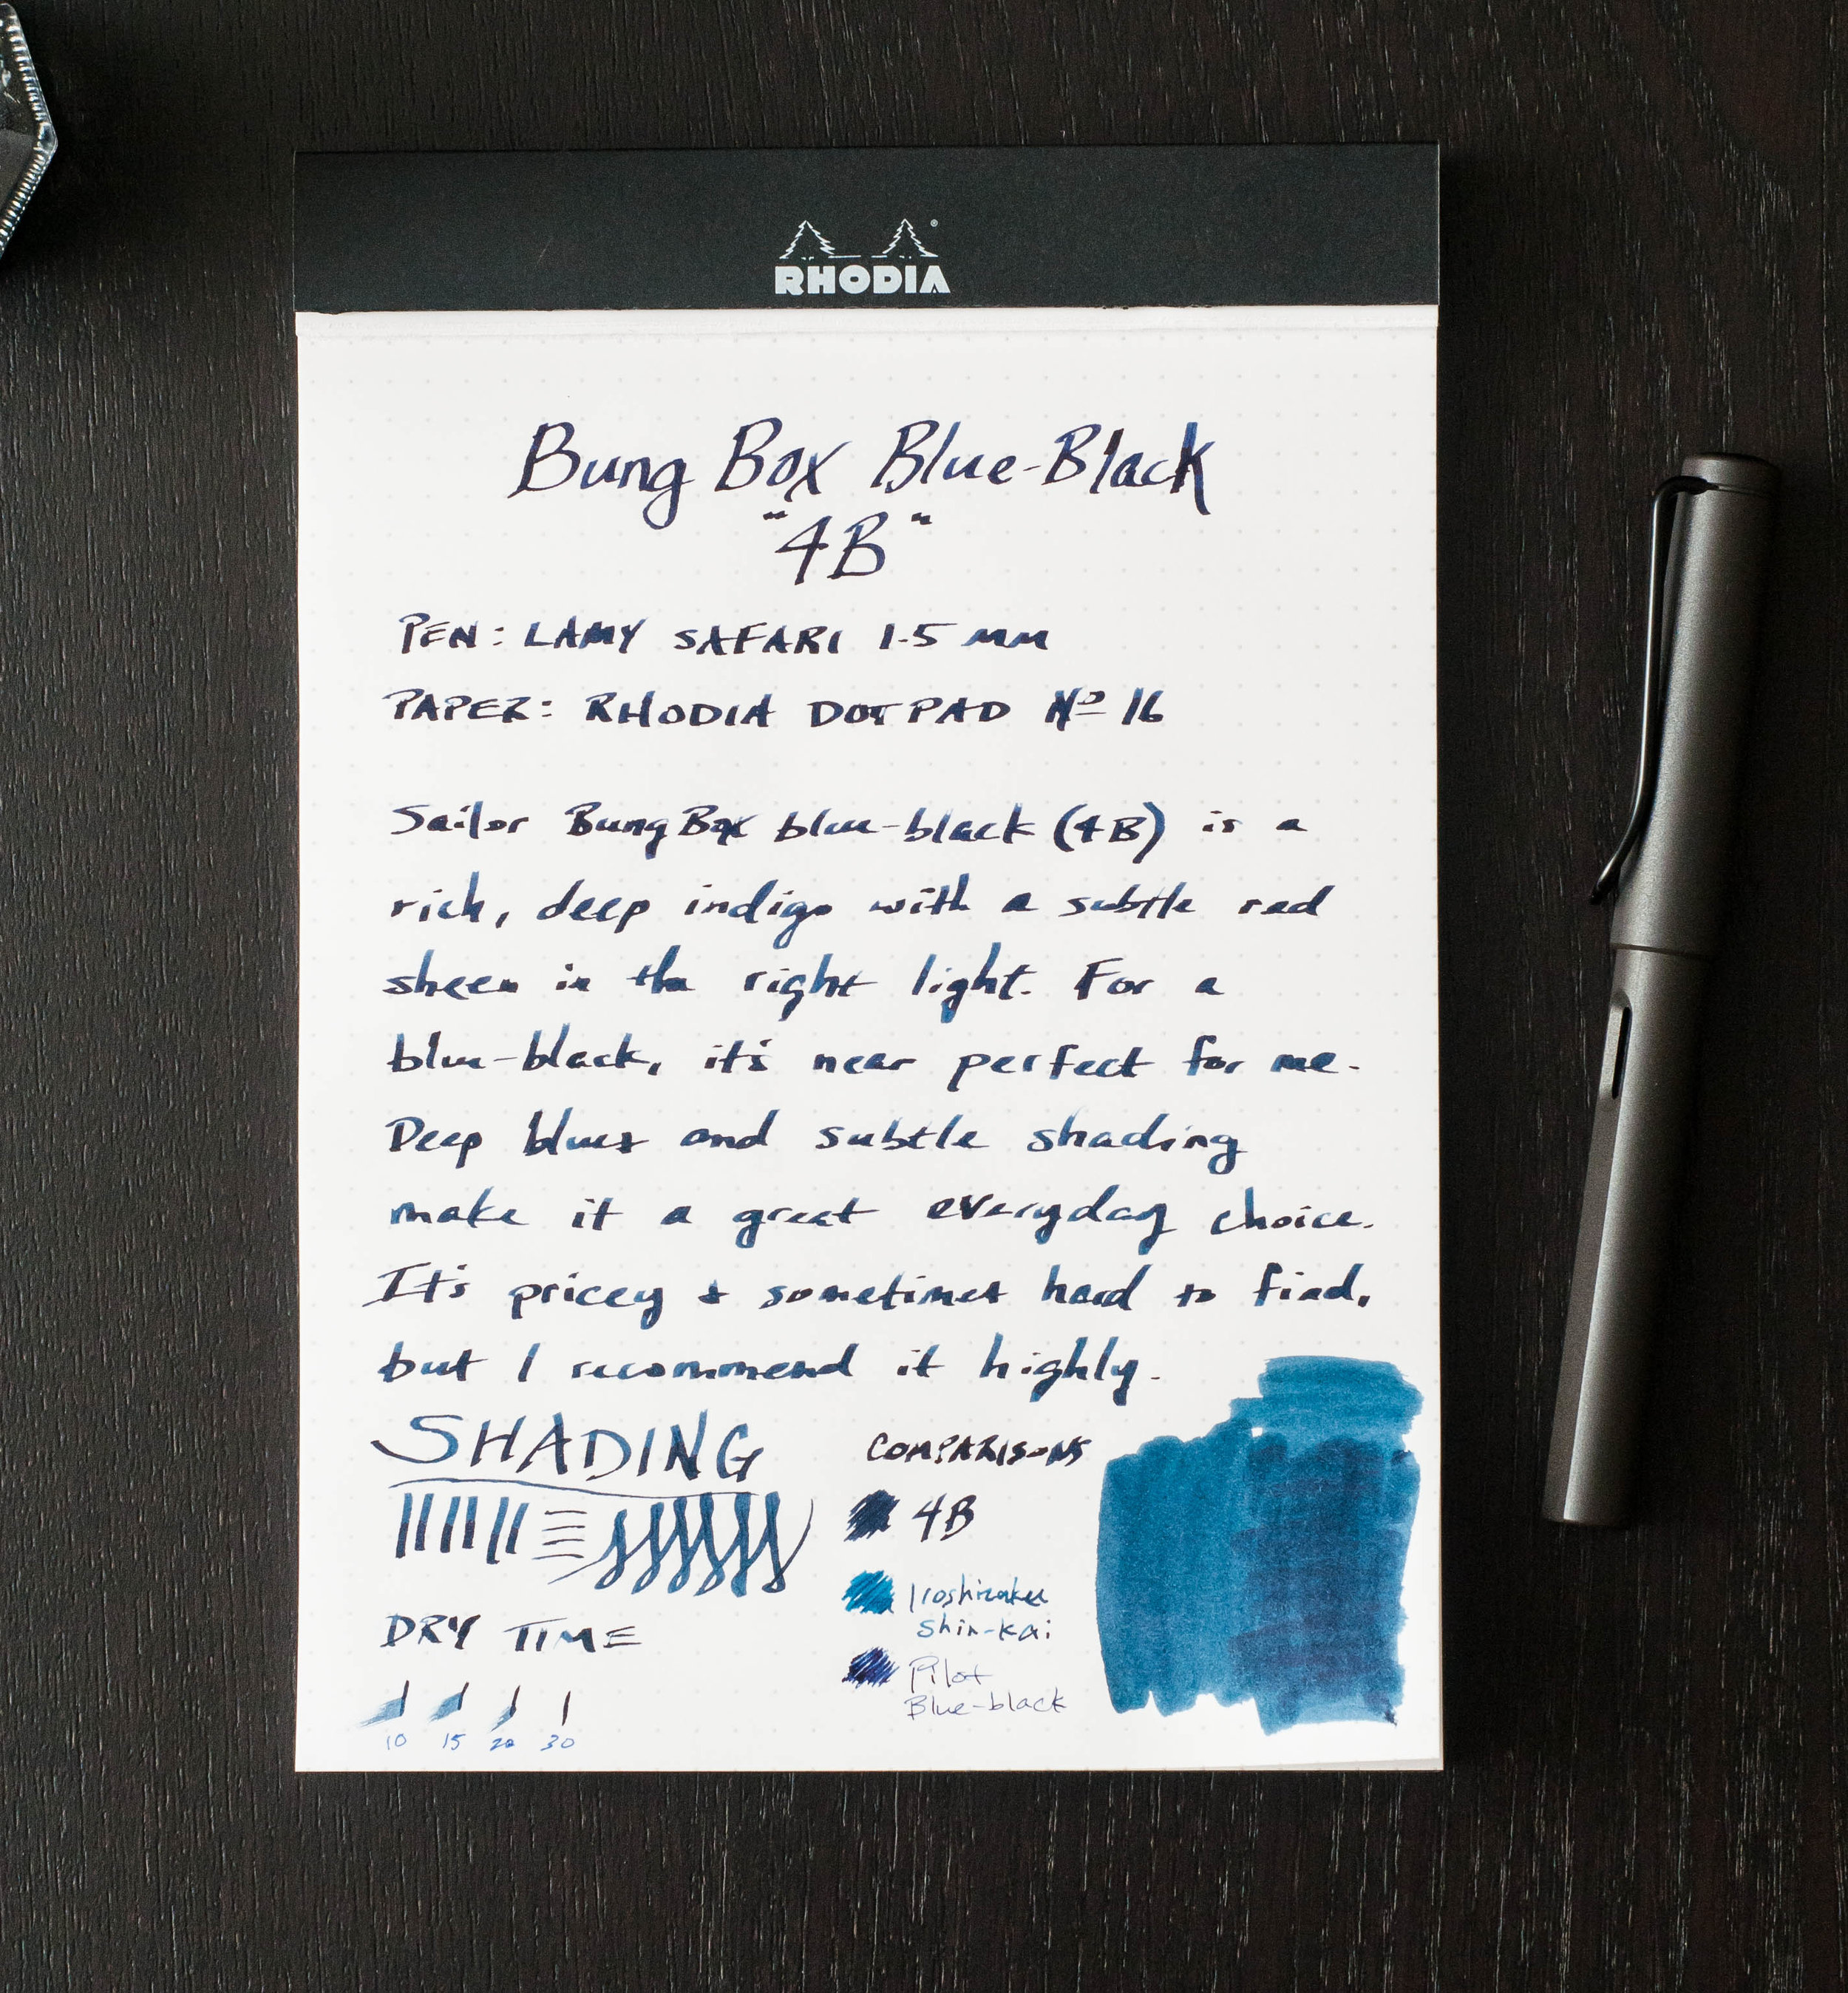 RHODIA
Bung Box Blue-Black
"4B"
PEN: LAMY SAFARI 1.5 MM
PAPER: RHODIA DOTPAD Nº 16
Sailor BungBox blue-black (4B) is a
rich, deep indigo with a subtle red
sheen in the right light. For a
blue-black, it's near perfect for me.
Deep blues and subtle shading
make it a great everyday choice.
It's pricey & sometimes hard to find,
but I recommend it highly.
SHADING
COMPARISONS
4B
Iroshizuku
Shin-kai
Pilot
Blue-black
DRY TIME
10 15 20 30